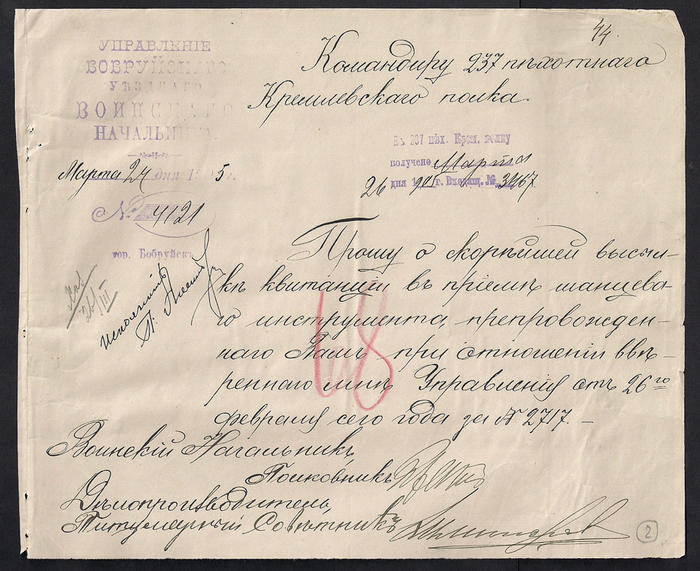 44.
УПРАВЛЕНІЕ
БОБРУЙСКАГО
УѢЗДНАГО
ВОИНСКАГО
НАЧАЛЬНИКА.
Марта 24 дня 5
№ 4121
гор. Бобруйскъ
Командиру 237 пѣхотнаго
Кремлевскаго полка.
Въ 237 пѣх. Крем. полку
получено Марта
26 дня 1905 г. Входящ. № 3467
исполнить
Прошу о скорѣйшей высыл-
кѣ квитанціи въ пріемѣ шанцева-
го инструмента, препровожден-
наго Вамъ при отношеніи ввѣ-
реннаго мнѣ Управленія отъ 26го
февраля сего года за № 2717. –
68
Воинскій Начальникъ,
Полковникъ
Дѣлопроизводитель,
Титулярный Совѣтникъ
2